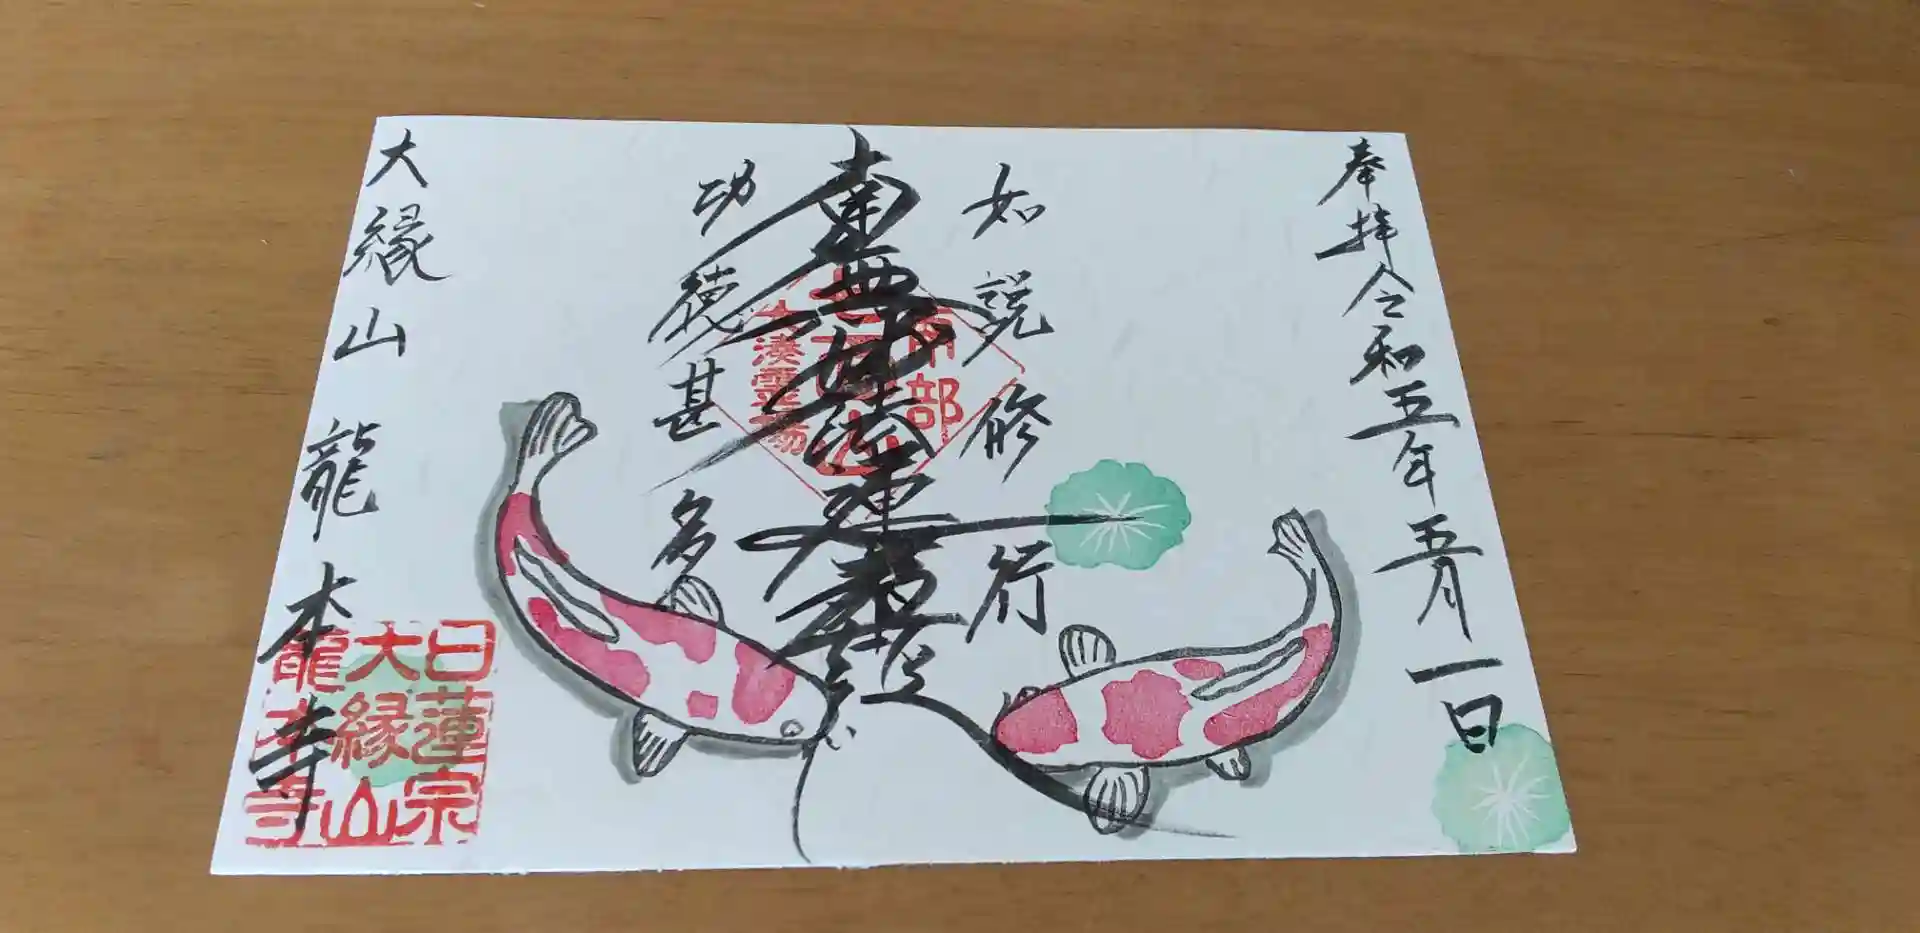 奉拝 令和五年五月一日
如説修行
南無妙法蓮華経
功徳甚多
南部
大湊霊場
大縁山 龍本寺
日蓮宗
大縁山
龍本寺